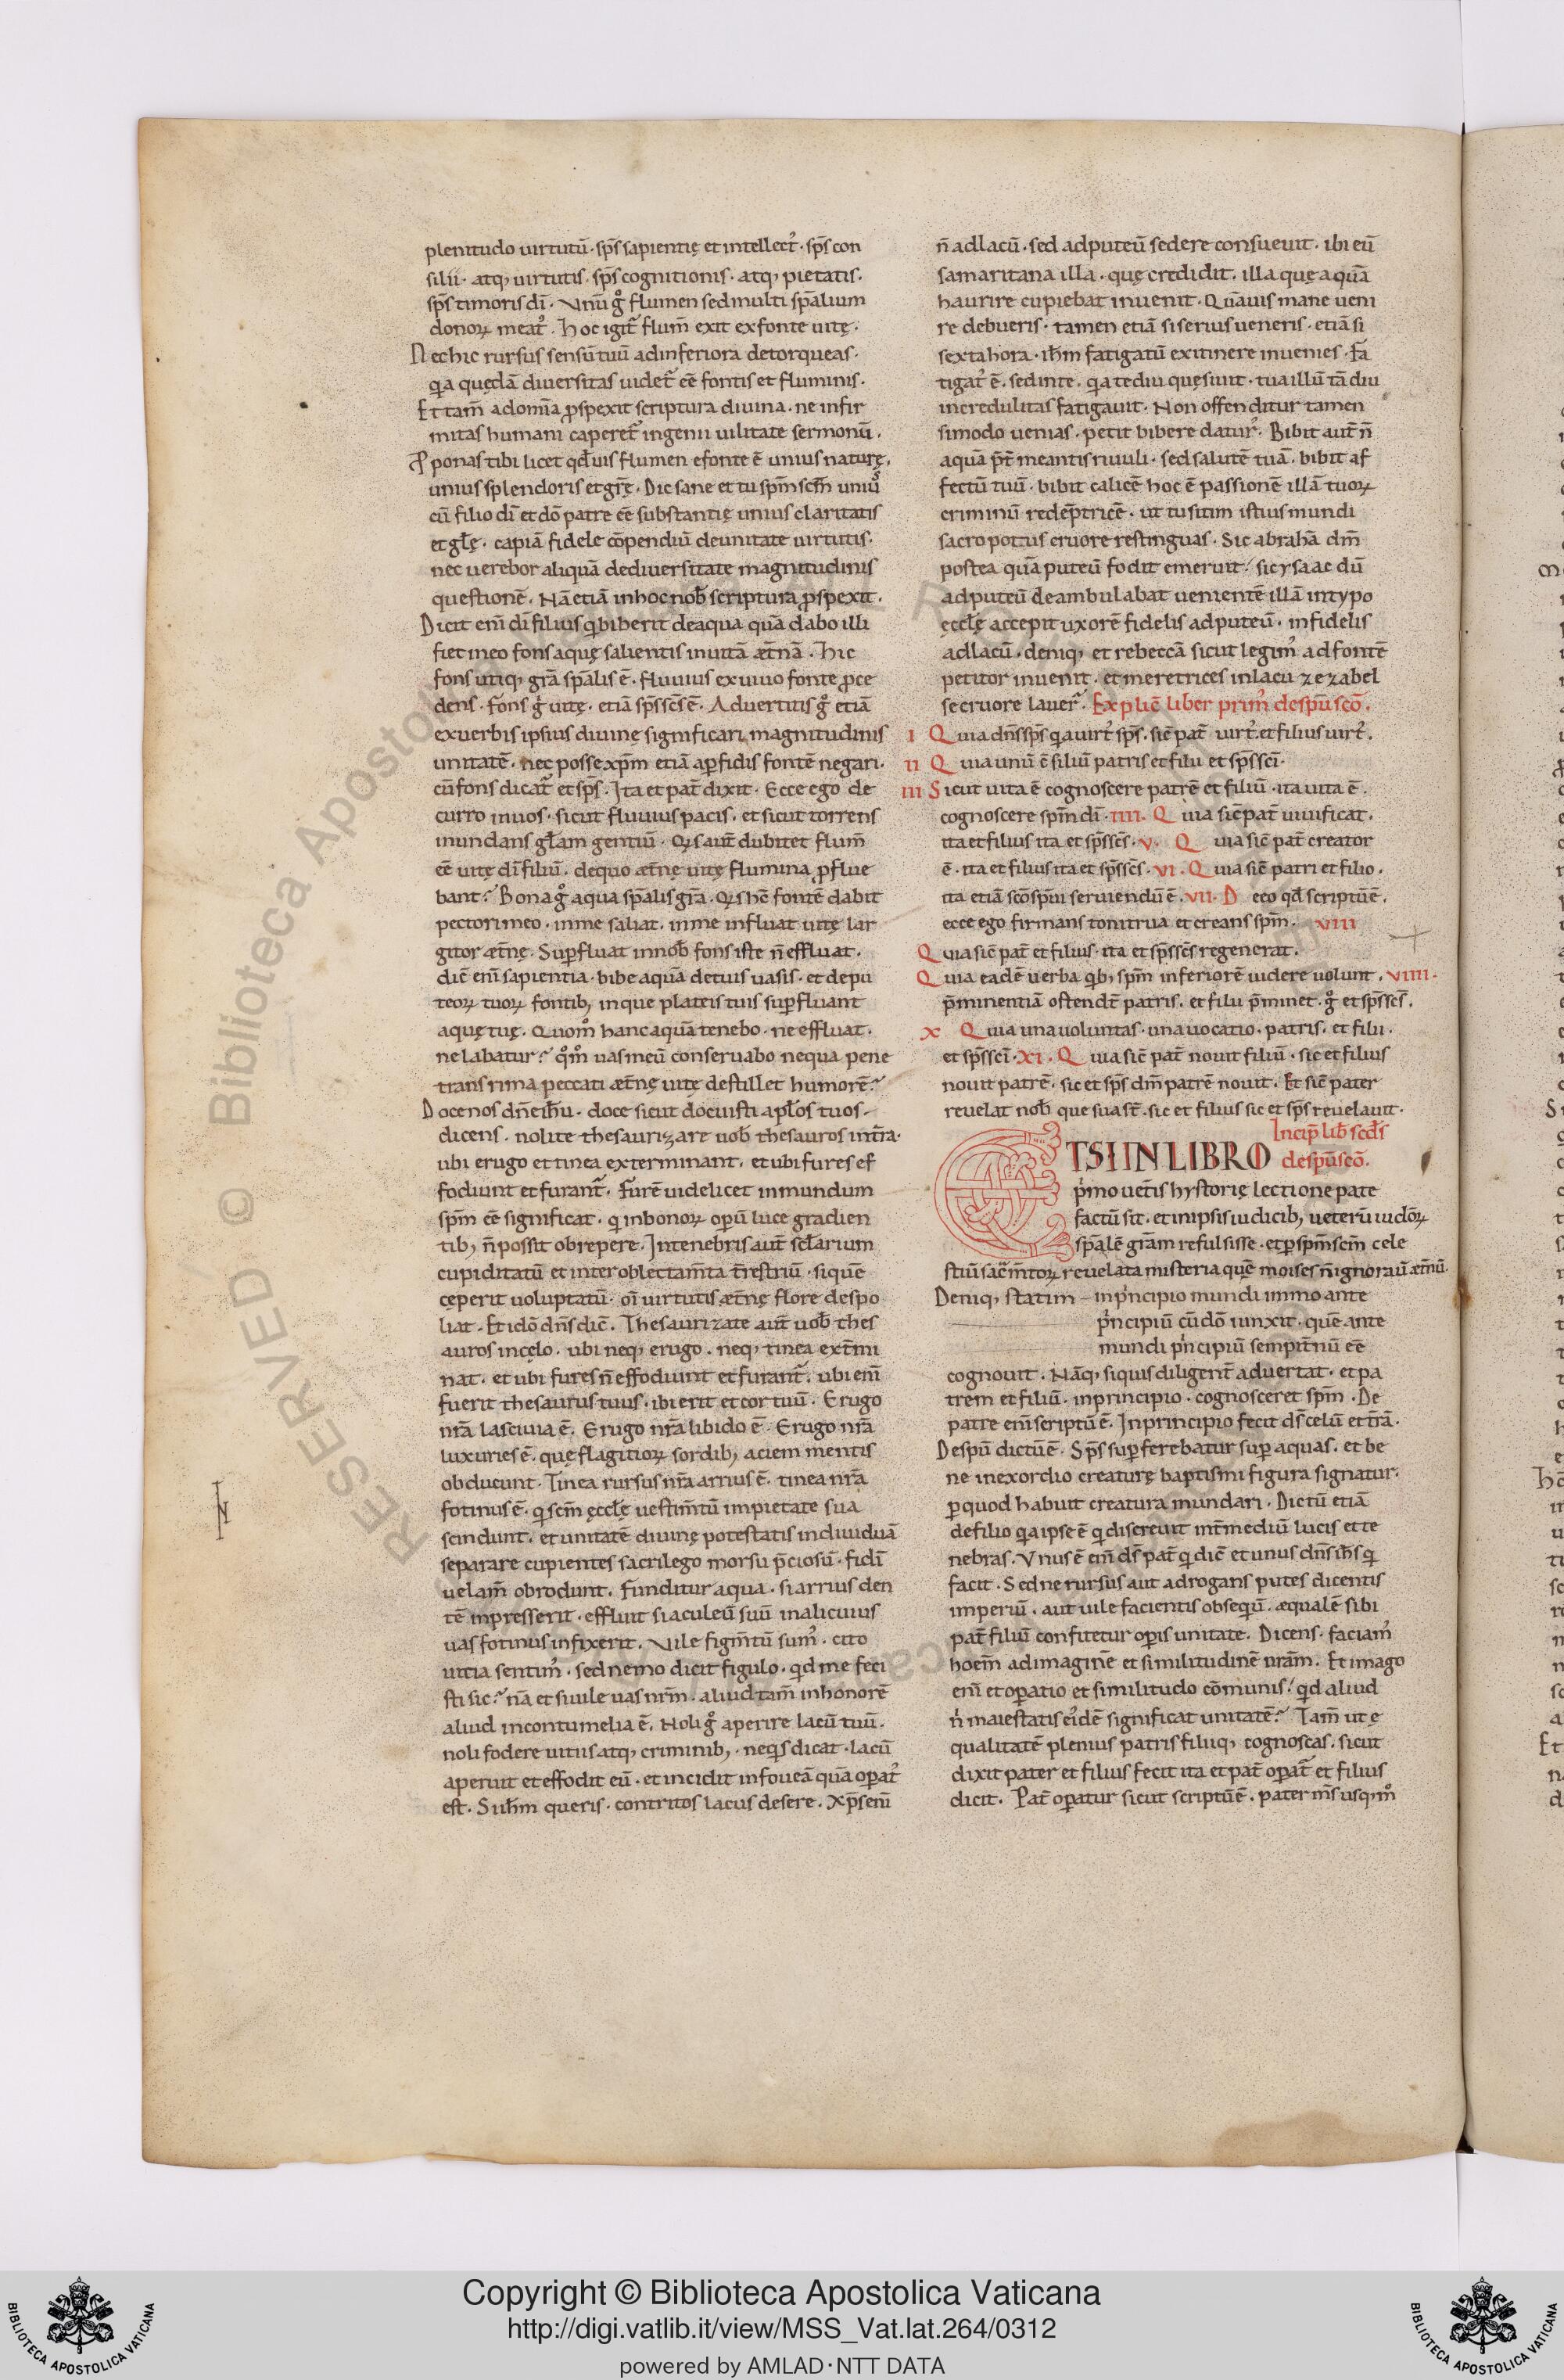 plenitudo uirtutū· sps̄ sapientię et intellect᷒· sps̄ con
silii· atq; uirtutis· sps̄ cognitionis· atq; pietatis·
sps̄ timoris dī· Vnū gͦ flumen sed multi spālium
donoꝝ meat᷒· Hoc igit᷒ flum̄ exit ex fonte uitę·
Nec hic rursus sensū tuū ad inferiora detorqueas·
qͥa quędā diuersitas uidet᷒ eē fontis et fluminis·
Et tam̄ ad omīa ꝓspexit scriptura diuina· ne infir
mitas humani caperet᷒ ingenii uilitate sermonū·
Ꝓponas tibi licet qd̄uis flumen e fonte ē unius naturę·
unius splendoris et gr̄ę· Dic sane et tu spm̄ scm̄ uniꝰ
cū filio dī et dō patre eē substantię unius claritatis
et gl̄ę· capiā fidele cōpendiū de unitate uirtutis·
nec uerebor aliquā de diuersitate magnitudinis
questionē· Nā etiā in hoc nob̄ scriptura ꝓspexit·
Dicit enī dī filius qͥ biberit de aqua quā dabo illi
fiet in eo fons aquę salientis in uitā æt̄nā· Hic
fons utiq; grā spālis ē· fluuius ex uiuo fonte ꝓce
dens· fons gͦ uitę· etiā sps̄ scs̄ ē· Aduertitis gͦ etiā
ex uerbis ipsius diuinę significari magnitudinis
unitatē· nec posse xpm̄ etiā a ꝑfidis fontē negari·
cū fons dicat᷒ et sps̄· Ita et pat̄ dixit· Ecce ego de
curro in uos· sicut fluuius pacis· et sicut torrens
inundans gl̄am gentiū· Qͥs aut̄ dubitet flum̄
eē uitę dī filiū· de quo æt̄nę uitę flumina ꝓflue
bant? Bona gͦ aqua spālis grā· Qͥs hc̄ fontē dabit
pectori meo· in me saliat· in me influat uitę lar
gitor æt̄nę· Suꝑfluat in nob̄ fons iste n̄ effluat·
dic̄ enī sapientia· bibe aquā de tuis uasis· et de pu
teoꝝ tuoꝝ fontib; in que plateis tuis suꝑfluant
aquę tuę· Quom̊ hanc aquā tenebo· ne effluat·
ne labatur? qͦm̊ uas meū conseruabo ne qua pene
trans rima peccati æt̄nę uitę destillet humorē?
Doce nos dn̄e ihū· doce sicut docuisti apl̄os tuos·
dicens· nolite thesaurizare uob̄ thesauros in t̄ra·
ubi erugo et tinea exterminant· et ubi fures ef
fodiunt et furant᷒· Furē uidelicet inmundum
spm̄ eē significat· qͥ in bonoꝝ opū luce gradien
tib; n̄ possit obrepere· In tenebris aut̄ sclarium
cupiditatū et inter oblectam̄ta t̄restriū· si quē
ceperit uoluptatū· oī uirtutis æt̄nę flore despo
liat· Et idō dn̄s dic̄· Thesaurizate aut̄ uob̄ thes
auros in cęlo· ubi neq; erugo· neq; tinea ext̄mi
nat· et ubi fures n̄ effodiunt et furant᷒· ubi enī
fuerit thesaurus tuus· ibi erit et cor tuū· Erugo
nrā lasciuia ē· Erugo nrā libido ē· Erugo nrā
luxuries ē· quę flagitioꝝ sordib; aciem mentis
obducunt· Tinea rursus nrā arrius ē· tinea nrā
fotinus ē· qͥ scm̄ ęccłę uestim̄tū impietate sua
scindunt· et unitatē diuinę potestatis indiuiduā
separare cupientes sacrilego morsu p̄ciosū· fidī
uelam̄ obrodunt· Funditur aqua· si arrius den
tē inpresserit· effluit si aculeū suū in alicuius
uas fotinus infixerit· Vile figm̄tū sum᷒· cito
uitia sentim᷒· sed nemo dicit figulo· qd̄ me feci
sti sic? nā et si uile uas nrm̄· aliud tam̄ in honorē
aliud in contumelia ē· Noli gͦ aperire lacū tuū·
noli fodere uitiis atq; criminib;· ne qͥs dicat· lacū
aperuit et effodit eū· et incidit in foueā quā opat᷒
est· Si ihm̄ queris· contritos lacus desere· Xps̄ enī
n̄ ad lacū· sed ad puteū sedere consueuit· ibi eū
samaritana illa· quę credidit· illa quę aquā
haurire cupiebat inuenit· Quāuis mane ueni
re debueris· tamen etiā si serius ueneris· etiā si
sexta hora· ihm̄ fatigatū ex itinere inuenies· fa
tigat᷒ ē· sed in te· qͥa te diu quęsiuit· tua illū tā diu
incredulitas fatigauit· Non offenditur tamen
si modo uenias· petit bibere datur᷒· Bibit aut̄ n̄
aquā p̄t̄meantis riuuli· sed salutē tuā· bibit af
fectū tuū· bibit calicē hoc ē passionē illā tuoꝝ
criminū redēptricē· ut tu sitim istius mundi
sacro potus cruore restinguas· Sic abrahā dm̄
postea quā puteū fodit emeruit· sic ysaac dū
ad puteū deambulabat uenientē illā in typo
ęccłę accepit uxorē fidelis ad puteū· infidelis
ad lacū· deniq; et rebeccā sicut legim᷒ ad fontē
petitor inuenit· et meretrices in lacu zezabel
se cruore lauer᷒· Explic̄ liber prim᷒ de spū scō·
I Quia dn̄s sps̄ qͥa uirt᷒ sps̄· sic̄ pat̄ uirt᷒ et filius uirt᷒·
II Quia unū ē siliū patris et filii et sps̄ scī·
III Sicut uita ē cognoscere patrē et filiū· ita uita ē·
cognoscere spm̄ dī· IIII· Quia sic̄ pat̄ uiuificat·
ita et filius ita et sps̄ scs̄· V· Quia sic̄ pat̄ creator
ē· ita et filius ita et sps̄ scs̄· VI· Quia sic̄ patri et filio·
ita etiā scō spūi seruiendū ē· VII· D eeo qd̄ scriptū ē·
ecce ego firmans tonitrua et creans spm̄· VIII
Quia sic̄ pat̄ et filius· ita et sps̄ scs̄ regenerat·
Quia eadē uerba qͥb; spm̄ inferiorē uidere uolunt· VIIII·
p̄minentiā ostendt̄ patris· et filii p̄minet· gͦ et sps̄ scs̄·
X Quia una uoluntas· una uocatio· patris· et filii·
et sps̄ scī· XI· Quia sic̄ pat̄ nouit filiū· sic et filius
nouit patrē· sic et sps̄ dm̄ patrē nouit· Et sic̄ pater
reuelat nob̄ que sua st̄· sic et filius sic et sps̄ reuelauit·
Incip̄ lib̄ scd̄s
ETSI IN LIBRO de spū scō·
pͥmo uet̄is hystorię lectione pate
factū sit· et in ipsis iudicib; ueterū iudōꝝ
spālē grām refulsisse· et ꝑ spm̄ scm̄ cele
stiū sac̄m̄toꝝ reuelata misteria quę moises n̄ ignorauit æt̄nū·
Deniq; statim in pͥncipio mundi immo ante
pͥncipiū cū dō iunxit· quē ante
mundi pͥncipiū sempit̄nū eē
cognouit· Nāq; siquis diligent̄ aduertat· et pa
trem et filiū· in principio· cognosceret spm̄· De
patre enī scriptū ē· In principio fecit ds̄ celū et t̄rā·
De spū dictū ē· Sps̄ suꝑferebatur suꝑ aquas· et be
ne in exordio creaturę baptismi figura signatur·
ꝑ quod habuit creatura mundari· Dictū etiā
de filio qͥa ipse ē qͥ discreuit int̄ mediū lucis et te
nebras· Vnus ē enī ds̄ pat̄ qͥ dic̄ et unus dn̄s ihs̄ qͥ
facit· Sed ne rursus aut adrogans putes dicentis
imperiū· aut uile facientis obsequū· æqualē sibi
pat̄ filiū confitetur opis unitate· Dicens· faciam᷒
hoem̄ ad imaginē et similitudinē nrām· Et imago
enī et opatio et similitudo cōmunis· qd̄ aliud
nͥ maiestatis eiͥdē significat unitatē? Tam̄ ut ę
qualitatē plenius patris filiiq; cognoscas· sicut
dixit pater et filius fecit ita et pat̄ opat᷒ et filius
dicit· Pat̄ opatur sicut scriptū ē· pater ms̄ usq; m̊
RESERVED © Biblioteca Apostolica Vaticana
Copyright © Biblioteca Apostolica Vaticana
http://digi.vatlib.it/view/MSS_Vat.lat.264/0312
powered by AMLAD·NTT DATA
BIBLIOTECA APOSTOLICA VATICANA
BIBLIOTECA APOSTOLICA VATICANA